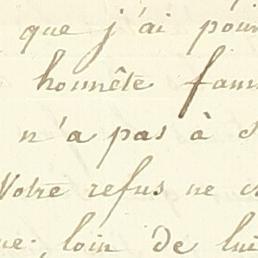 que j'ai pour
honnête fam
n'a pas à s
Votre refus ne
ue, loin de lui